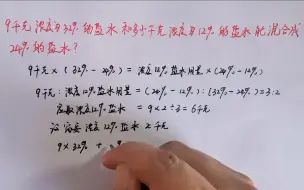 9千克浓度为32%的盐水和多少千克浓度为12%的盐水能混合成
24%的盐水?
9千克×(32%-24%)=浓度12%盐水用量×(24%-12%)
9千克:浓度12%盐水用量=(24%-12%):(32%-24%)=3:2
应取浓度12%盐水=9×2÷3=6千克
设需要浓度12%盐水x千克
9×32%+